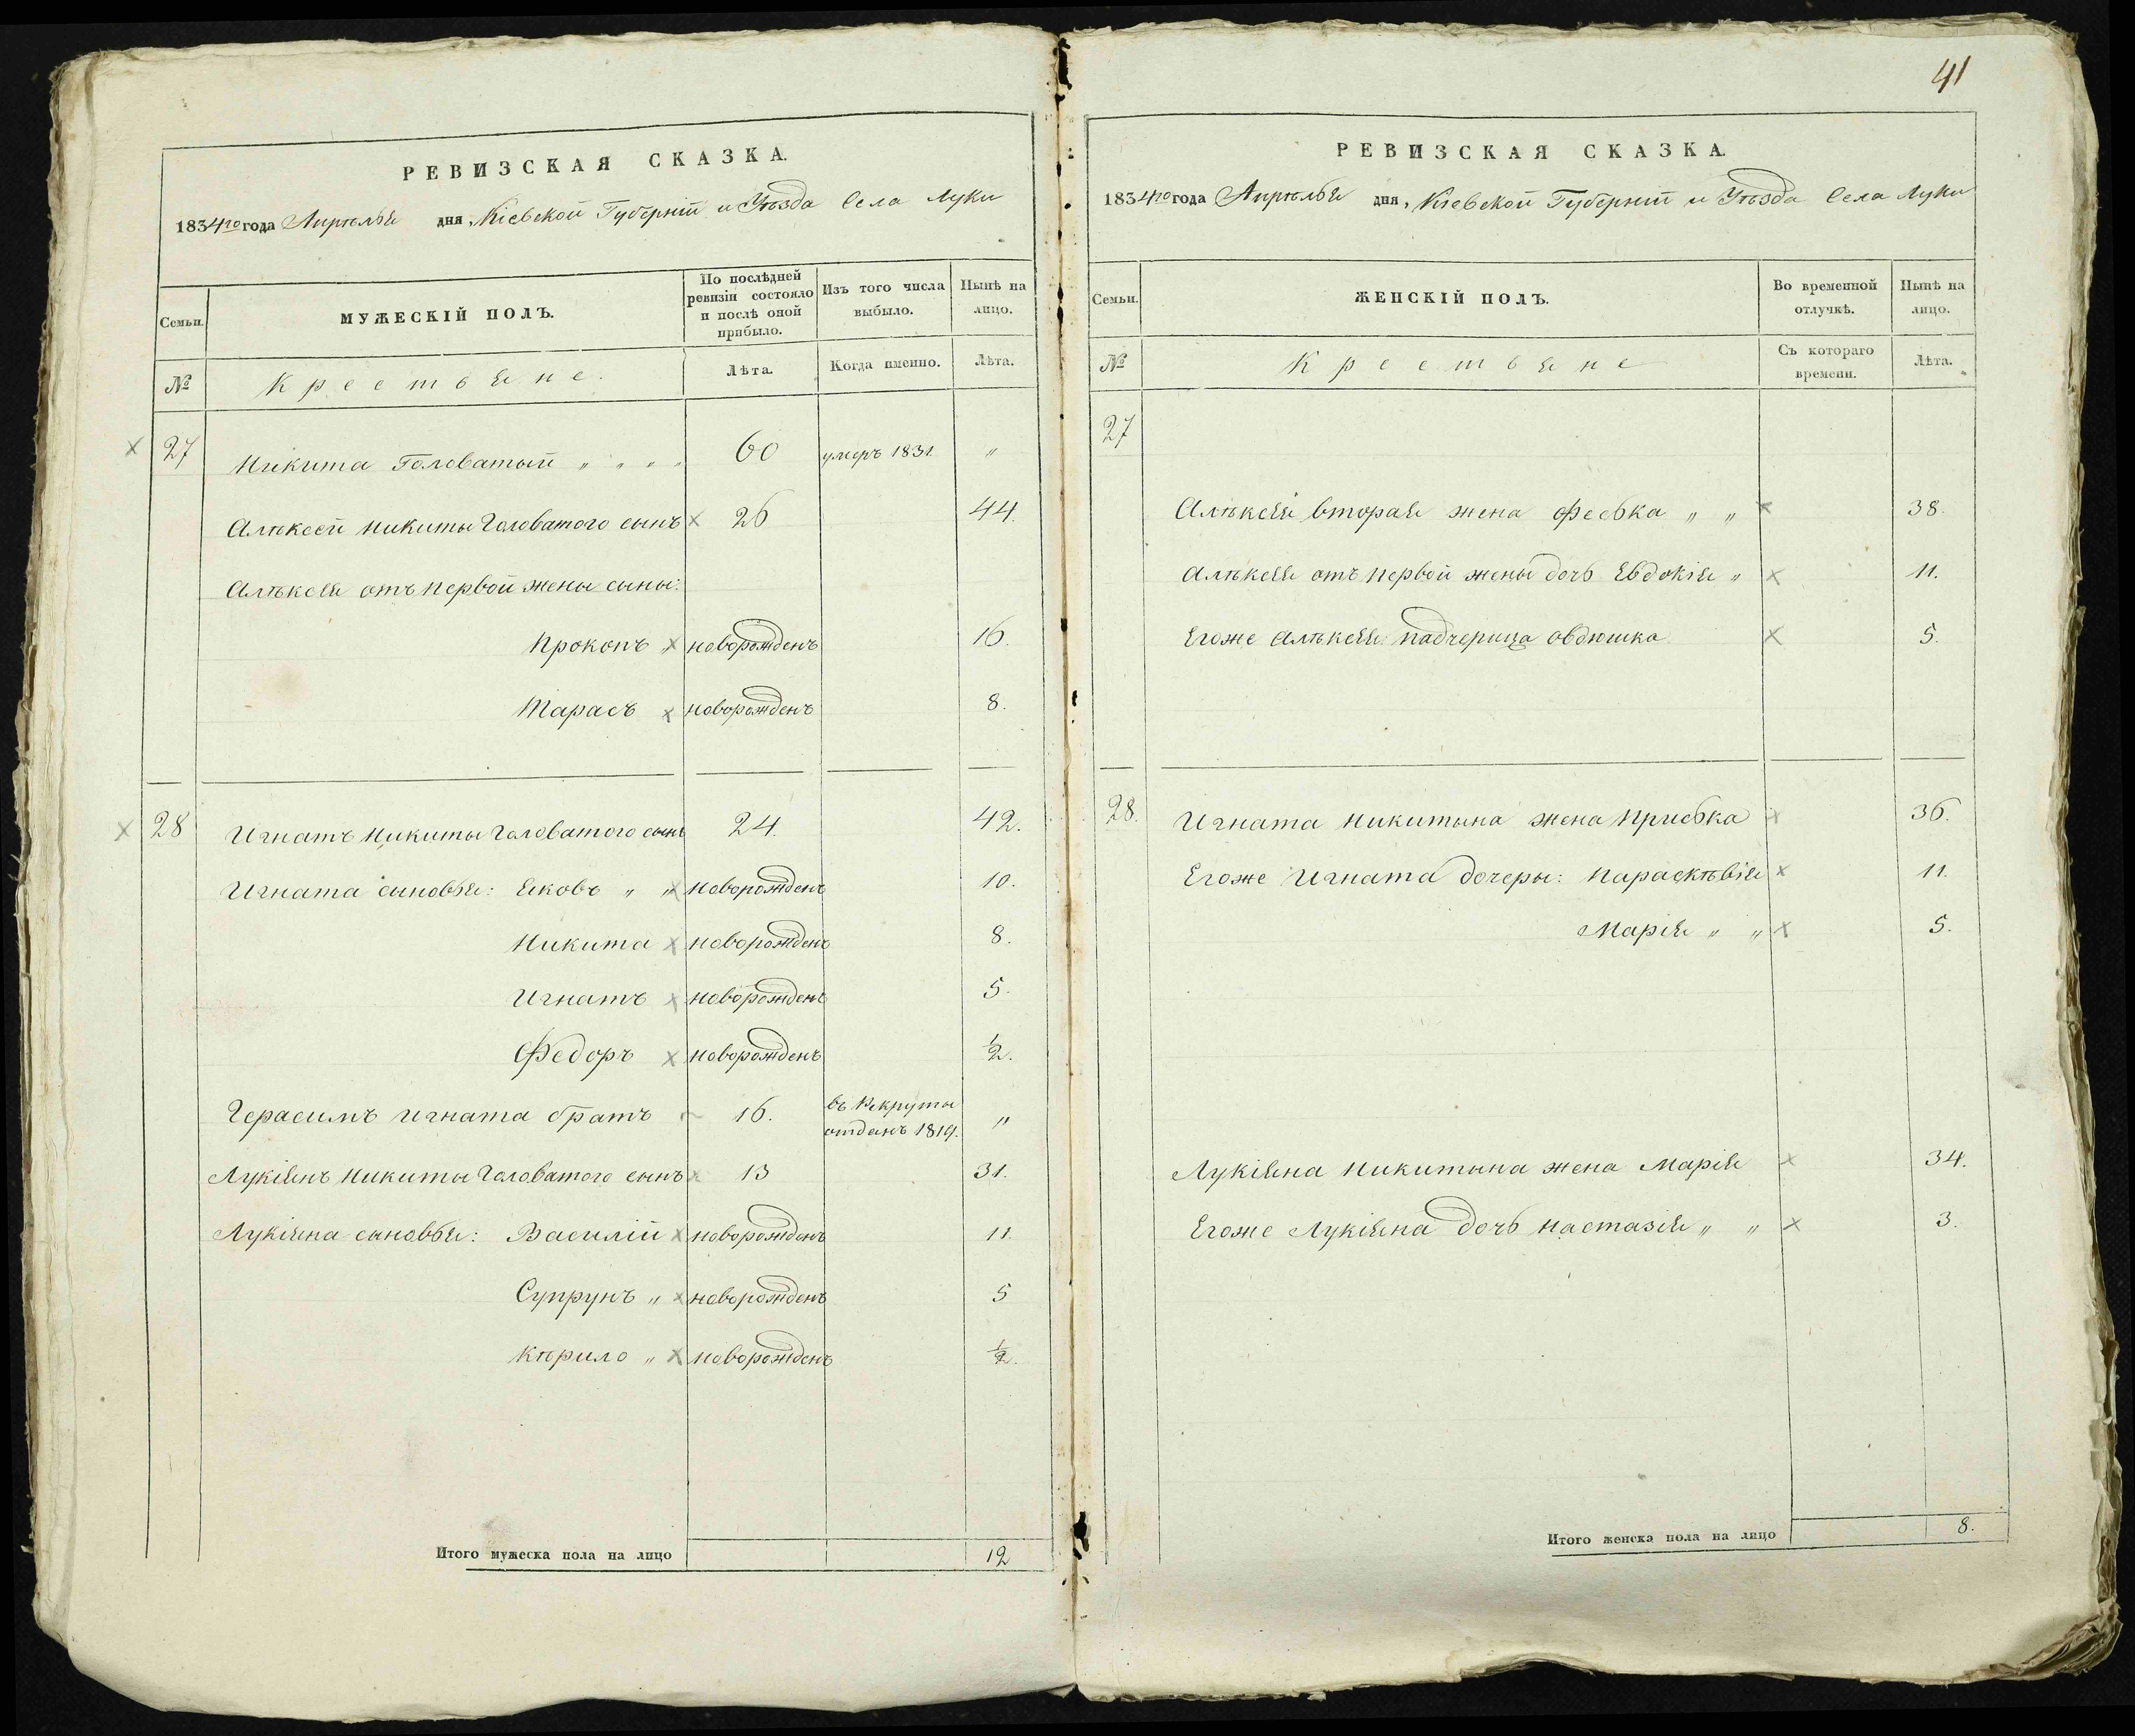 РЕВИЗСКАЯ СКАЗКА.
1834го года Апрѣлья дня, Кіевской Губерніи и Уѣзда Села Луки
Семьи.
МУЖЕСКІЙ ПОЛЪ.
По послѣдней ревизіи состояло и послѣ оной прибыло.
Изъ того числа выбыло.
Нынѣ на лицо.
№
Крестьяне.
Лѣта.
Когда именно.
Лѣта.
27 Никита Головатый „ „ „ „ 60 умеръ 1831. „
Алѣксей Никиты Головатого сынъ 26 44.
Алѣксея отъ первой жены сыны:
Прокопъ „ новорожденъ 16.
Тарасъ новорожденъ 8.
28 Игнатъ Никиты Головатого сынъ 24. 42.
Игната сыновья: Яковъ „ „ новорожденъ 10.
Никита новорожденъ 8.
Игнатъ новорожденъ 5.
Федоръ новорожденъ ½.
Герасимъ Игната братъ 16. въ Рекруты отданъ 1819. „
Лукіянъ Никиты Головатого сынъ 13 31.
Лукіяна сыновья: Василій новорожденъ 11.
Супрунъ „ новорожденъ 5
Кѣрило „ новорожденъ ½.
Итого мужеска пола на лицо 12
41
РЕВИЗСКАЯ СКАЗКА.
1834го года Апрѣлья дня, Кіевской Губерніи и Уѣзда Села Луки
Семьи.
ЖЕНСКІЙ ПОЛЪ.
Во временной отлучкѣ.
Нынѣ на лицо.
№
Крестьяне
Съ котораго времени.
Лѣта.
27
Алѣксея вторая жена Феська „ „ 38.
Алѣксея отъ первой жены дочь Евдокія „ 11.
Егоже Алѣксея падчерица Овдюшка 5.
28. Игната Никитына жена Приська 36.
Егоже Игната дочеры: Параскѣвія 11.
Марія „ „ 5.
Лукіяна Никитына жена Марія 34.
Егоже Лукіяна дочь Настазія „ „ 3.
Итого женска пола на лицо 8.